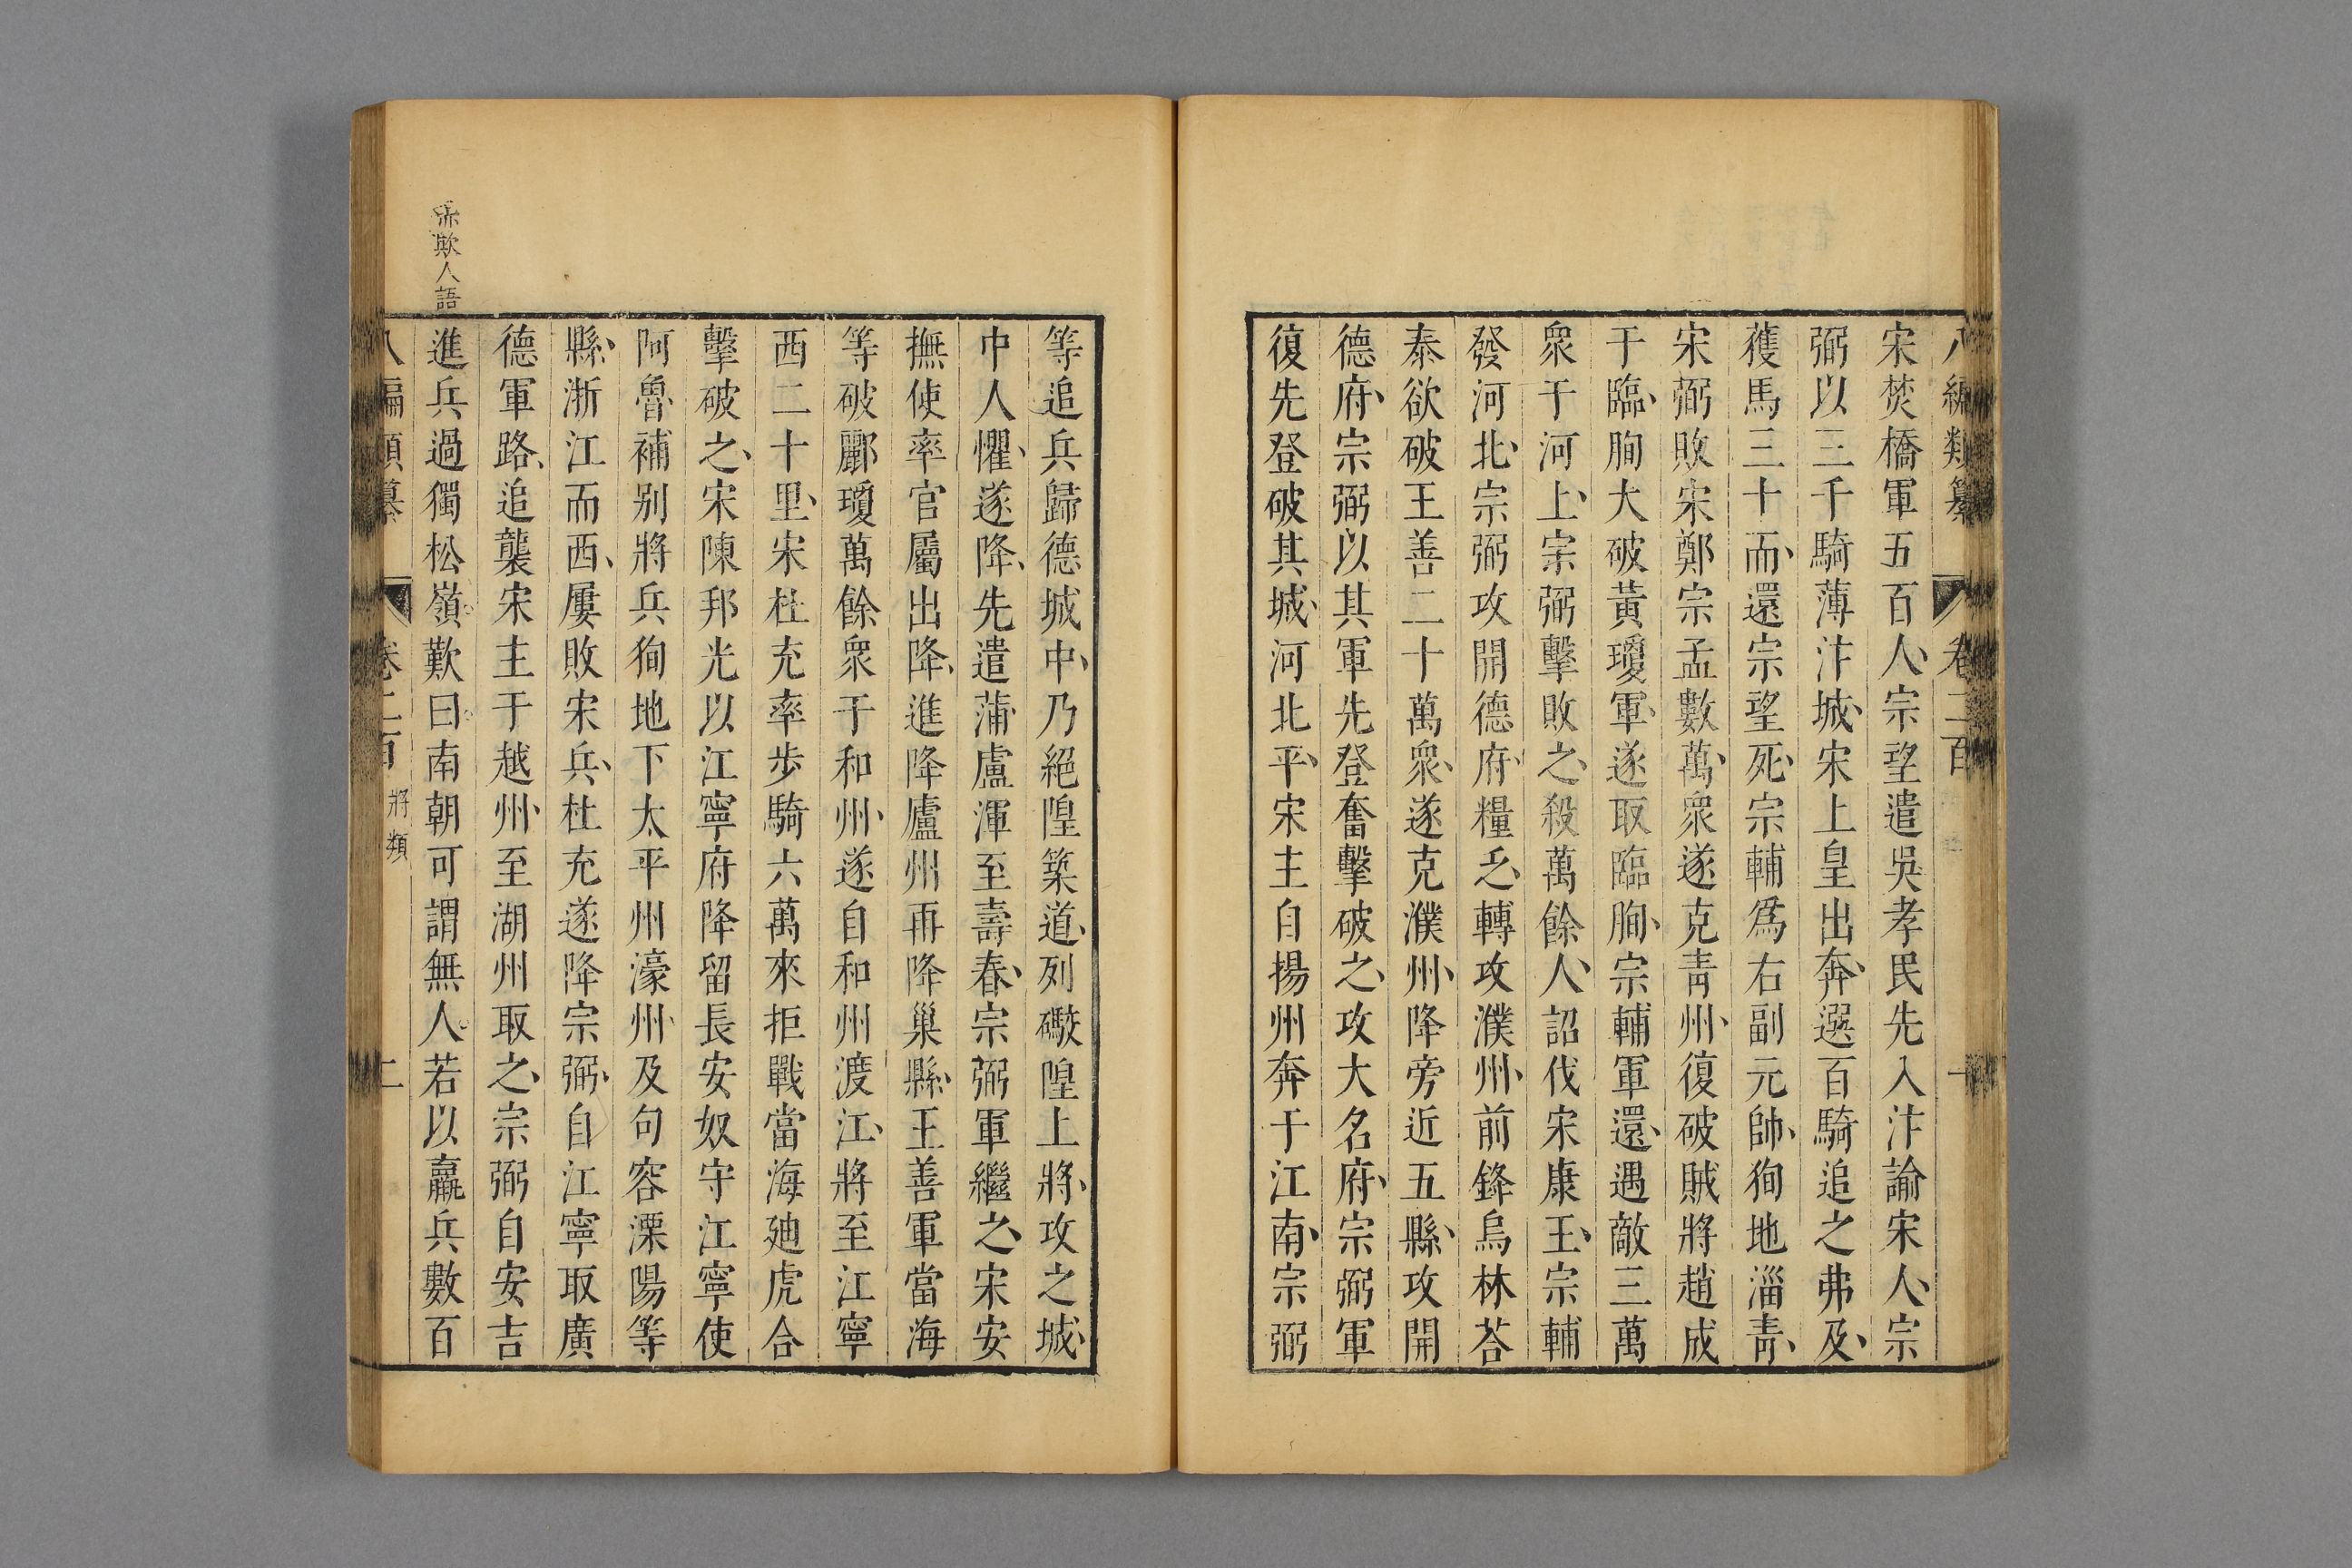 八編類纂 卷二百 一
宋焚橋軍五百人、宗望遣吳孝民先入汴諭宋人、宗
弼以三千騎薄汴城、宋上皇出奔、選百騎追之弗及、
獲馬三十而、還宗望死、宗輔爲右副元帥、狥地淄靑、
宋弼敗宋鄭宗孟數萬、衆遂克靑州、復破賊將趙成
于臨、朐大破黃瓊軍、遂取臨朐、宗輔軍還、遇敵三萬
衆于河上、宗弼擊敗之、殺萬餘人、詔伐宋康王、宗輔
發河北、宗弼攻開德府、糧乏、轉攻濮州、前鋒烏林荅
泰欲破王善二十萬衆、遂克濮州、降旁近五縣、攻開
德府、宗弼以其軍先登奮擊破之、攻大名府、宗弼軍
復先登破其城、河北平、宋主自揚州奔于江南、宗弼
等追兵歸德城中、乃絕隍築道、列礮隍上將、攻之城、
中人懼、遂降、先遣蒲盧渾至壽春、宗弼軍繼之、宋安
撫使率官屬出降、進降廬州再降巢縣、王善軍當海
等破酈瓊萬餘衆于和州、遂自和州渡江、將至江寧
西二十里、宋杜充率步騎六萬來拒戰當海廸虎合
擊破之、宋陳邦光以江寧府降留長安奴守江寧使
阿魯補别將兵狥地下太平州濠州、及句容溧陽等
縣、浙江而西、屢敗宋兵、杜充遂降宗弼、自江寧取廣
德軍路、追襲宋主于越州、至湖州取之、宗弼自安吉
進兵過獨松嶺歎曰南朝可謂無人若以羸兵數百
八編類纂 卷二百 將類 二
亦欺人語